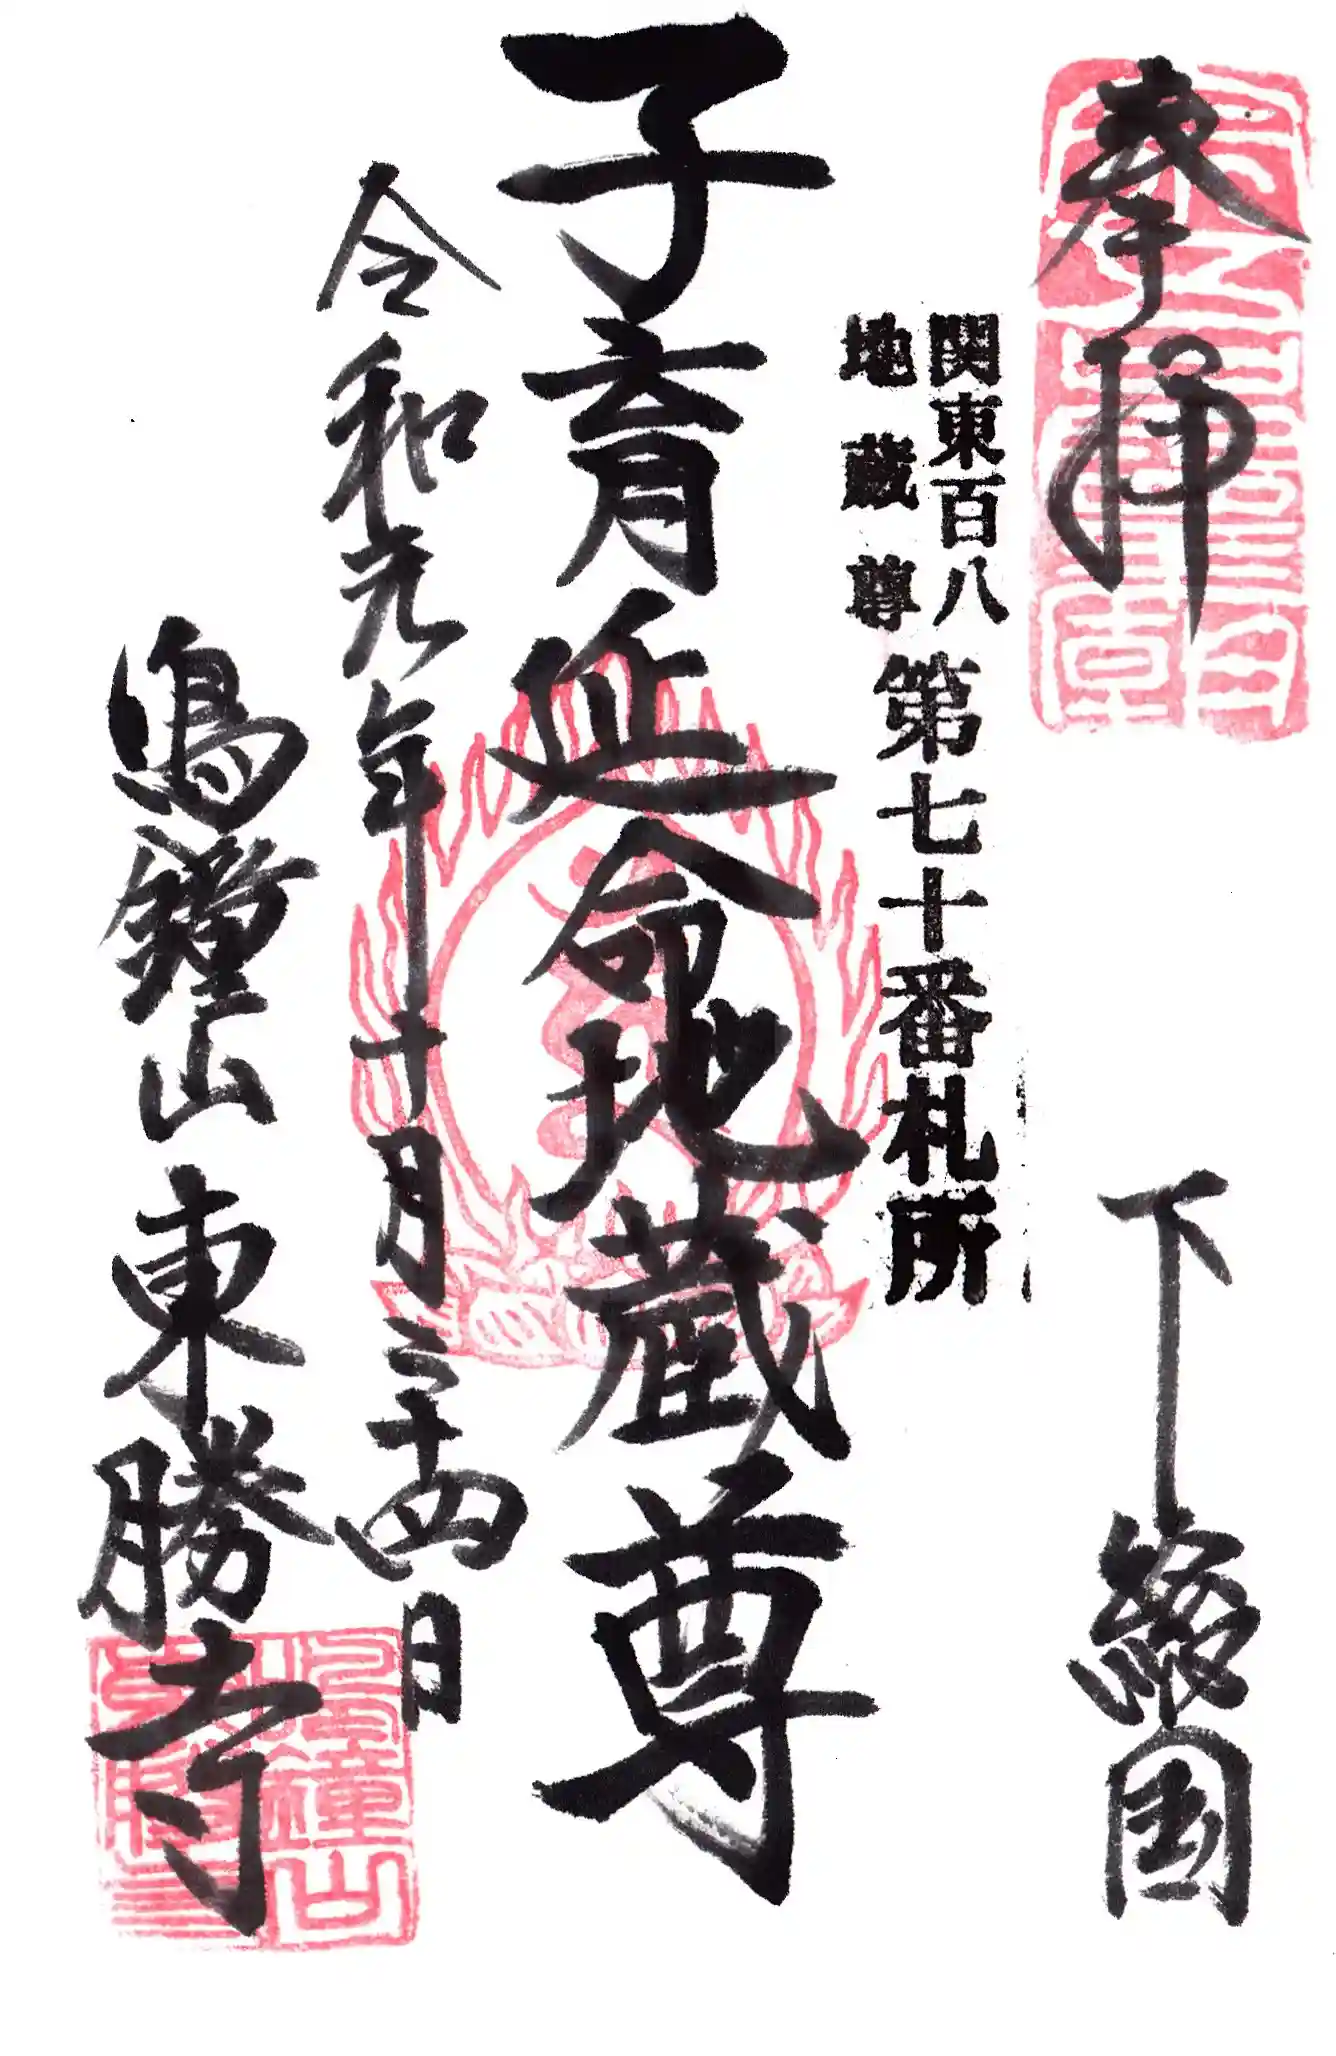 奉拝
下総国
関東百八
地蔵尊
第七十番札所
子育延命地蔵尊
令和元年十月二十四日
鳴鐘山東勝寺